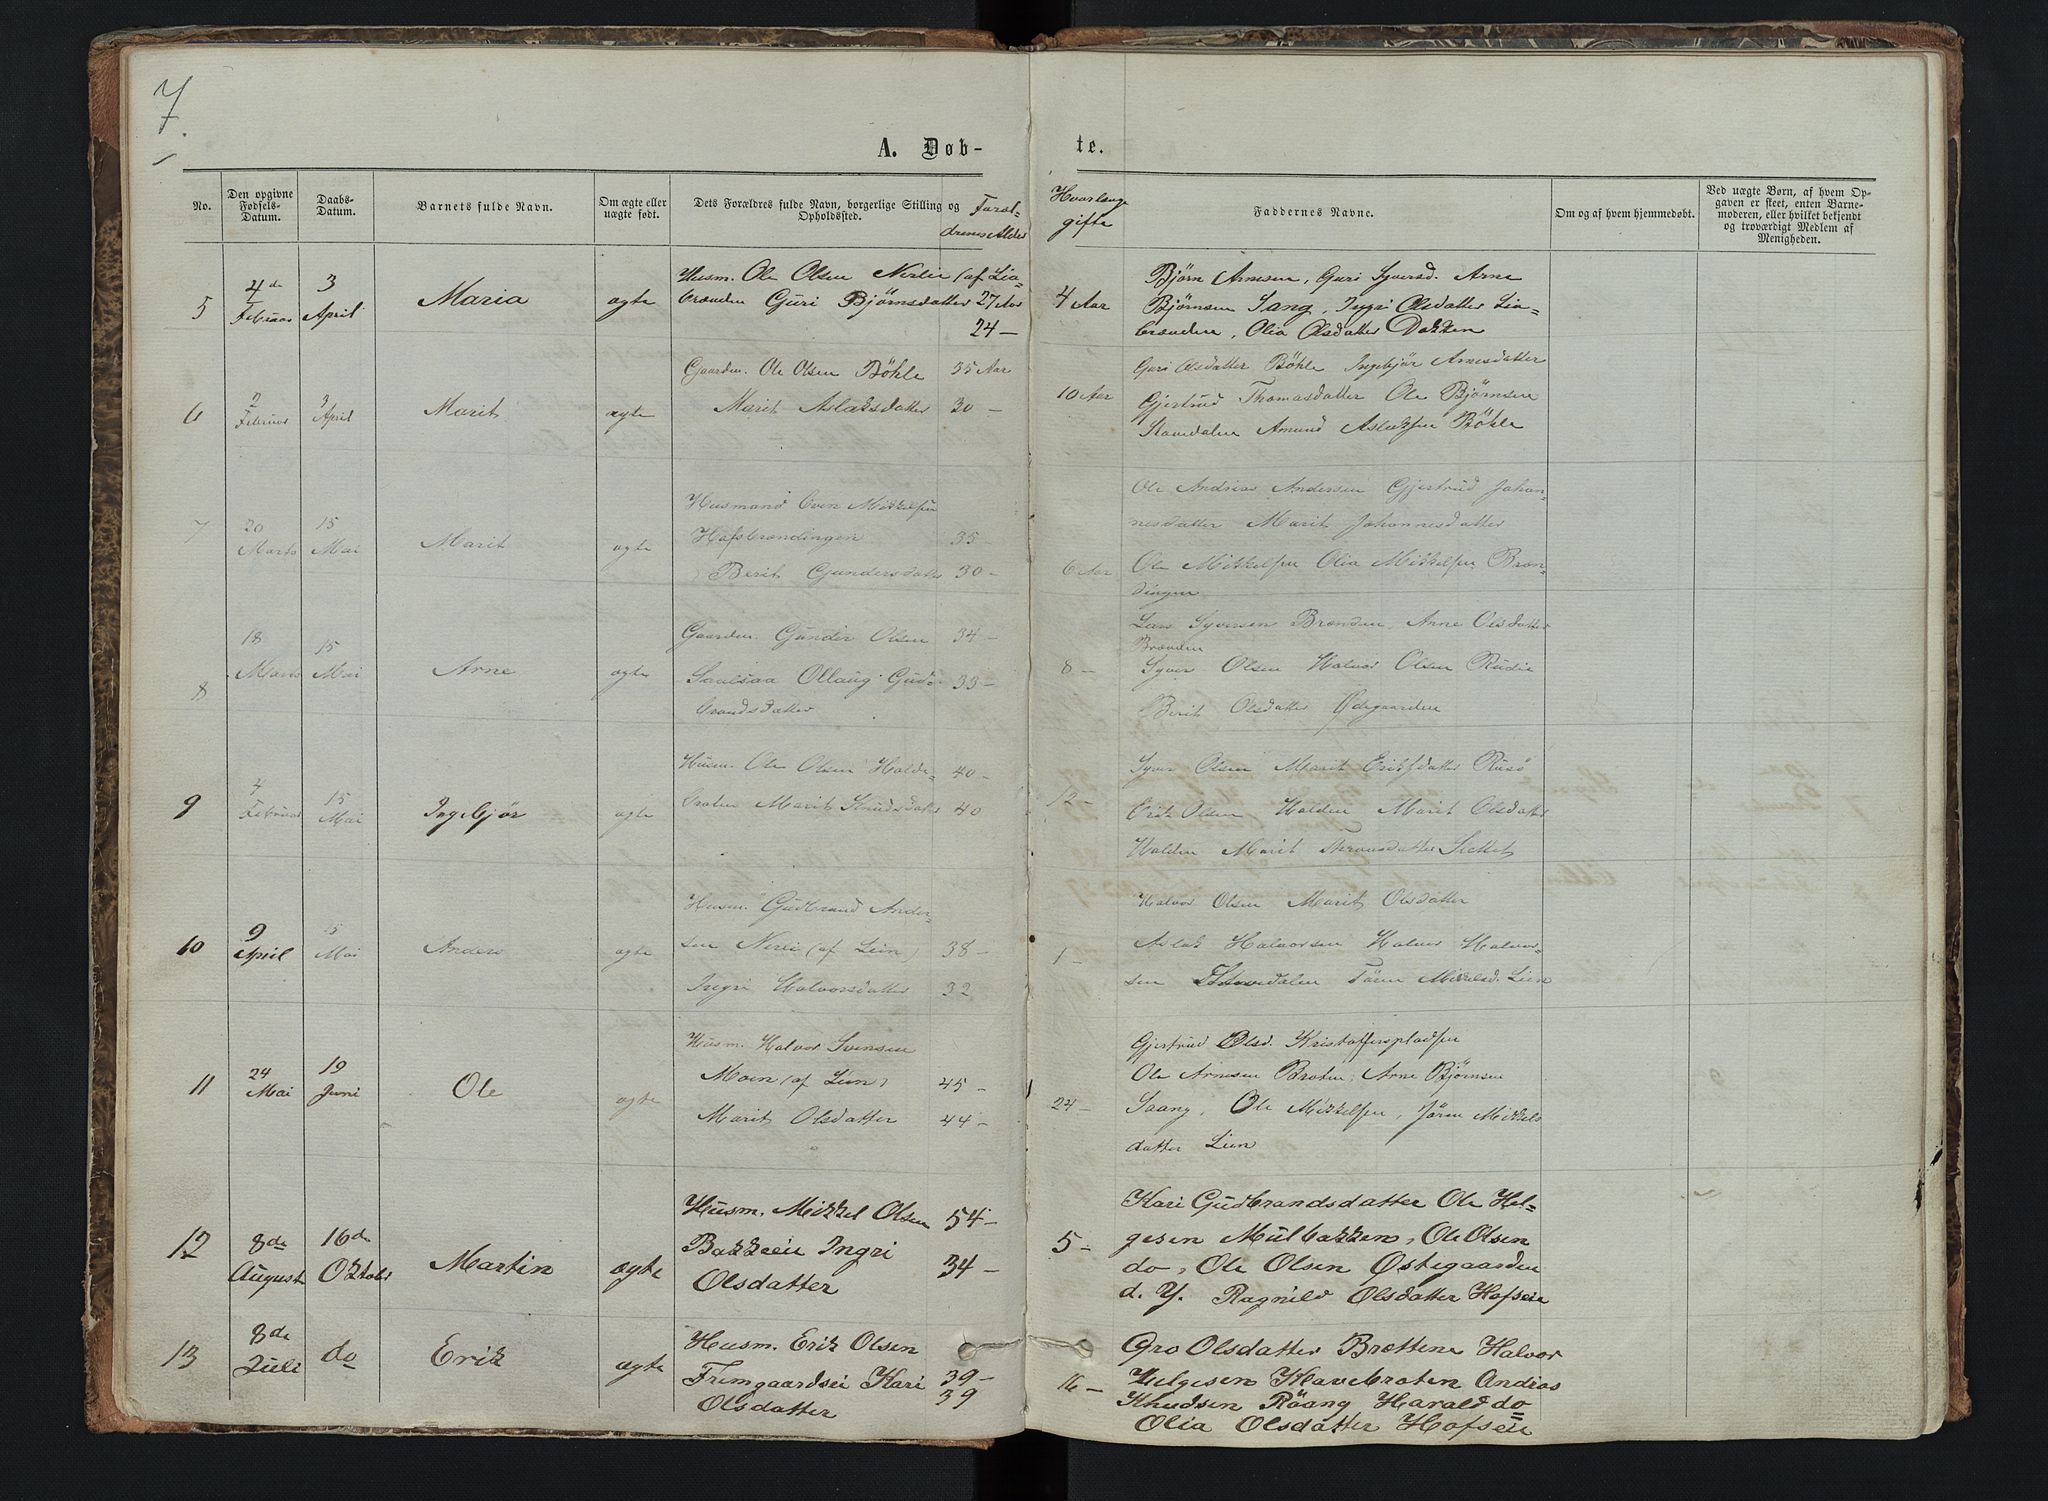 7
A. Døb-
te.
No.
Den opgivne Fødsels-Datum.
Daabs-Datum.
Barnets fulde Navn.
Om ægte eller uægte født.
Dets Forældres fulde Navn, borgerlige Stilling og Opholdssted.
Foræl-
drenes Alder
Hvorlænge
gifte
Faddernes Navne.
Om og af hvem hjemmedøbt.
Ved uægte Børn, af hvem Op-
gaven er skeet, enten Barne-
moderen, eller hvilket bekjendt
og troværdigt Medlem af
Menigheden.
5
4de Februar
3 April
Maria
ægte
Husm. Ole Olsen Nerlie (af Lia-
brænden Guri Bjørnsdatter 27 Aar
24 —
4 Aar
Bjørn Arnesen, Guri Syversd. Arne
Bjørnsen Sang, Ingri Olsdatter Lia-
brænden, Olia Olsdatter Dokken
6
2 Februar
3 April
Marit
ægte
Gaardm. Ole Olsen Bøhle 35 Aar
Marit Aslaksdatter 30 —
10 Aar
Guri Olsdatter Bøhle Ingebjør Arnesdatter
Gjertrud Thomasdatter Ole Bjørnsen
Stavedalen Amund Aslaksen Bøhle
7
20 Marts
15 Mai
Marit
ægte
Husmand Even Mikkelsen
Hofsbrændingen 35 —
Berit Gundersdatter 30 —
6 Aar
Ole Andreas Andersen Gjertrud Johan-
nesdatter Marit Johannesdatter
Ole Mikkelsen Olia Mikkelsen Bræn-
dingen
8
18 Marts
15 Mai
Arne
ægte
Gaardm. Gunder Olsen 34 —
Saalsaa Ollaug Gud- 33 —
brandsdatter
8 —
Lars Syversen Brænden, Anne Olsdatter
Brænden
Syver Olsen Halvor Olsen Rudie
Berit Olsdatter Ødegaarden
9
4 Februar
15 Mai
Ingebjør
ægte
Husm. Ole Olsen Holde- 40 —
braten Marit Knudsdatter 40
12 —
Syver Olsen Marit Eriksdatter Rusø
Erik Olsen Holden Marit Olsdatter
Holden Marit
10
9 April
15 Mai
Anders
ægte
Husm. Gudbrand Ander-
sen Nerlie (af Lien) 38 —
Ingri Halvorsdatter 32
1 —
Halvor Olsen Marit Olsdatter
Aslak Halvorsen Halvor Halvor-
sen Stavedalen Jøren Mikkelsd. Lien
11
24 Mai
19 Juni
Ole
ægte
Husm. Halvor Svensen
Moen (af Lien) 45 —
Marit Olsdatter 44 —
24 —
Gjertrud Olsd. Kristofferspladsen
Ole Arnesen Braten, Arne Bjørnsen
Saang, Ole Mikkelsen, Jøren Mikkels
datter Lien
12
8de August
16de Oktobr
Martin
ægte
Husm. Mikkel Olsen 54 —
Bakkeeie Ingri 34 —
Olsdatter
5 —
Kari Gudbrandsdatter Ole Hel-
gesen Mulbakken, Ole Olsen
do, Ole Olsen Østegaarden
d. Y. Ragnild Olsdatter Hofseie
13
8de Juli
do
Erik
ægte
Husm. Erik Olsen
Fremgaardsei Kari 39 —
Olsdatter 39
16 —
Gro Olsdatter Brættene Halvor
Helgesen Havebraten Andreas
Knudsen Røang Harald do
Olia Olsdatter Hofseie